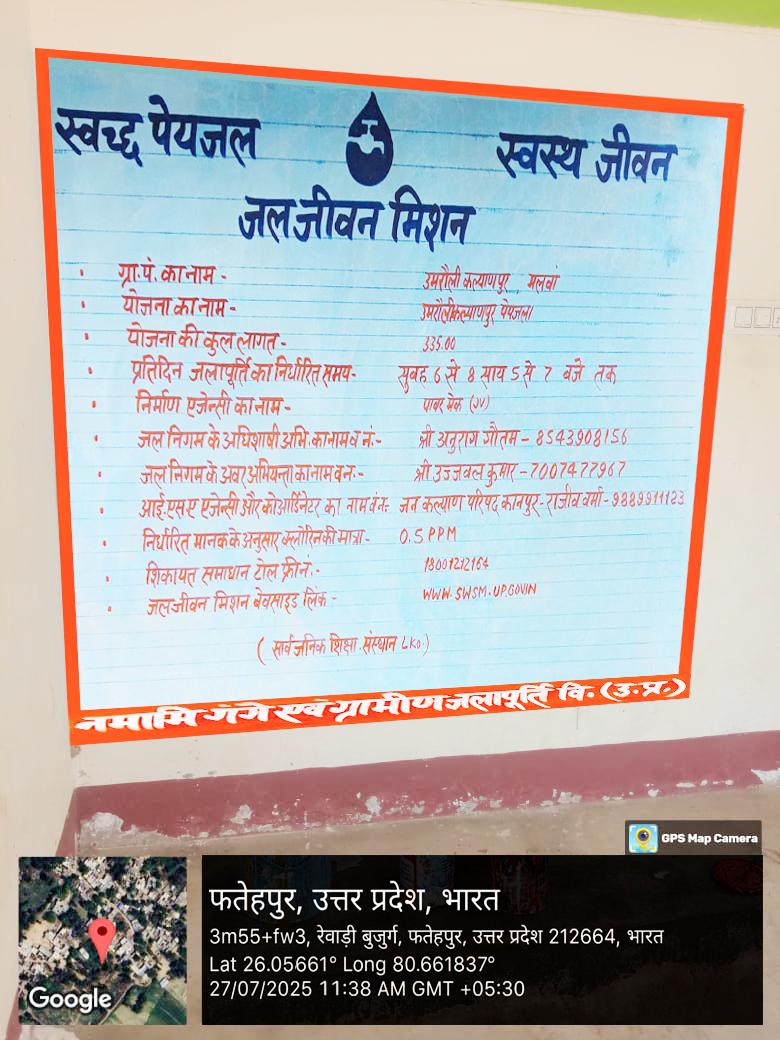 स्वच्छ पेयजल
स्वस्थ जीवन
जल जीवन मिशन
• ग्रा.पं. का नाम - उमरौली कल्याणपुर, मलवां
• योजना का नाम - उमरौली कल्याणपुर पेयजला
• योजना की कुल लागत - 335.00
• प्रतिदिन जलापूर्ति का निर्धारित समय - सुबह 6 से 8 साय 5 से 7 बजे तक
• निर्माण एजेन्सी का नाम - पावर मेक (JV)
• जल निगम के अधिशाषी अभि. का नाम व नं:- श्री अनुराग गौतम - 8543908156
• जल निगम के अवर अभियन्ता का नाम व न:- श्री उज्जवल कुमार - 7007477967
• आई.एस.ए एजेन्सी और कोआर्डिनेटर का नाम व न:- जन कल्याण परिषद कानपुर - राजीव वर्मा - 9889911123
• निर्धारित मानक के अनुसार क्लोरिन की मात्रा - 0.5 PPM
• शिकायत समाधान टोल फ्री नं.- 18001212164
• जल जीवन मिशन बेवसाइड लिंक - WWW.SWSM.UP.GOV.IN
( सार्वजनिक शिक्षा संस्थान LKO.)
नमामि गंगे एवं ग्रामीण जलापूर्ति वि. (उ.प्र.)
GPS Map Camera
फतेहपुर, उत्तर प्रदेश, भारत
3m55+fw3, रेवाड़ी बुजुर्ग, फतेहपुर, उत्तर प्रदेश 212664, भारत
Lat 26.05661° Long 80.661837°
27/07/2025 11:38 AM GMT +05:30
Google